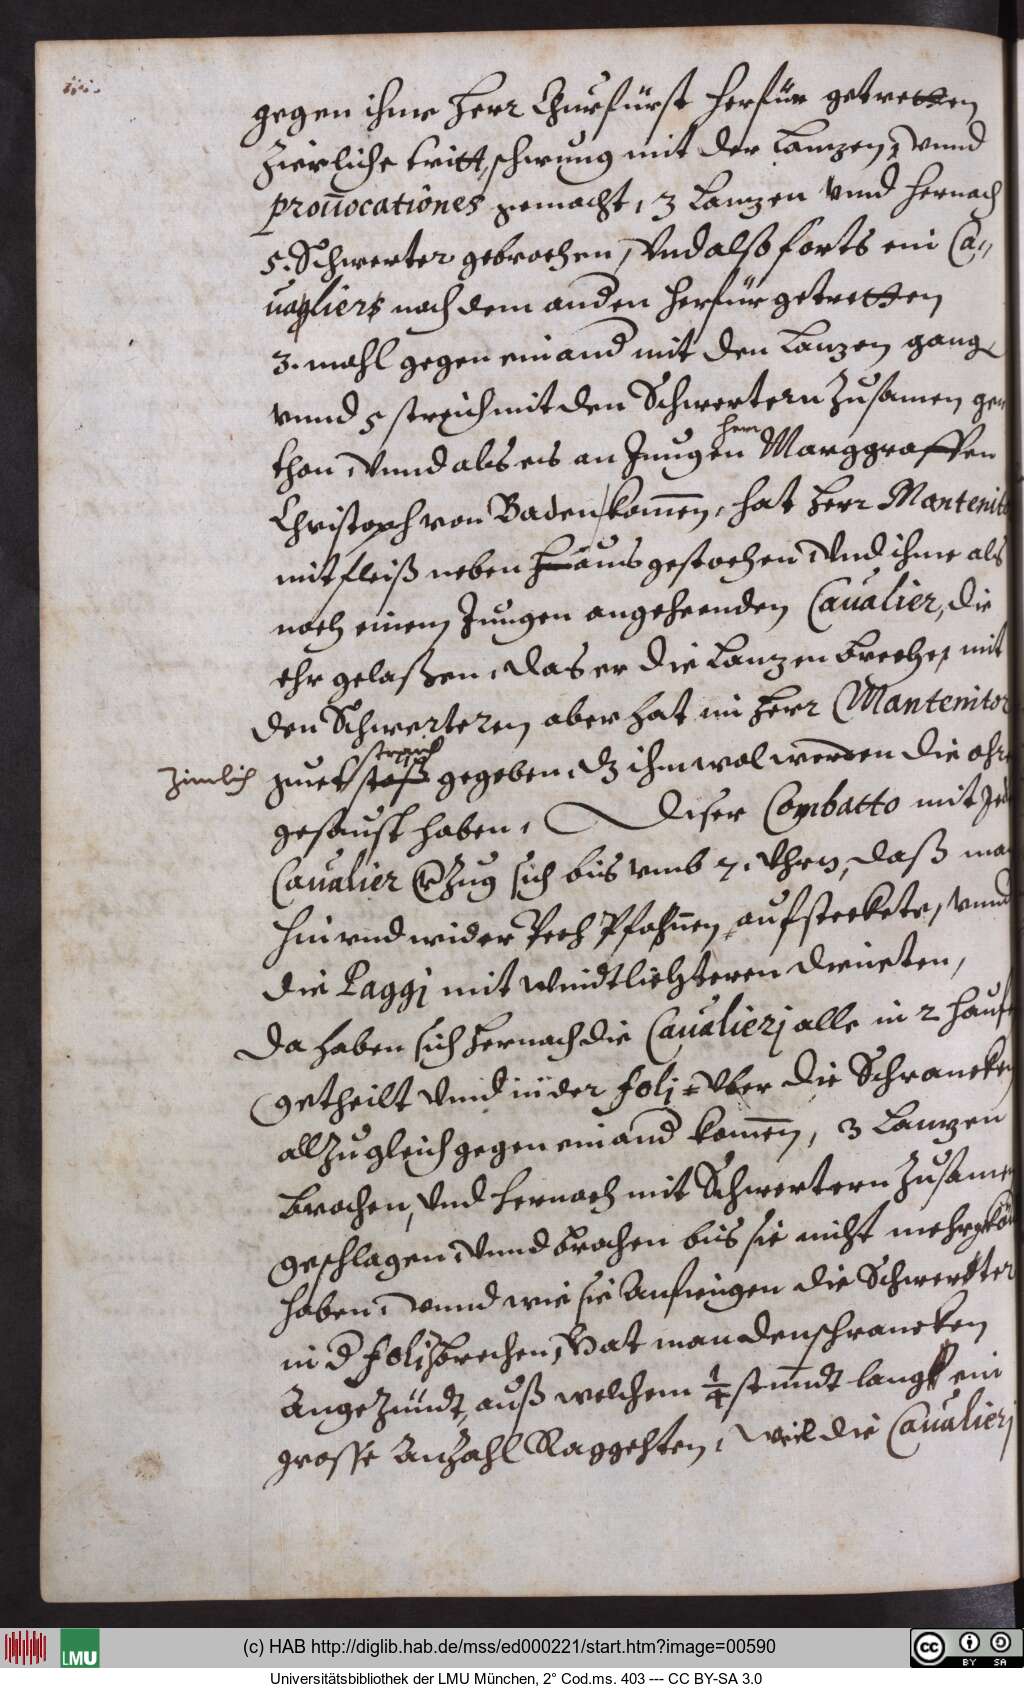 gegen ihme herr Churfürst herfür getretten
Zierliche tritt, schwung mit der Lanzen, vnnd
prouocationes gemacht, 3 Lanzen vnnd hernach
5. Schwerter gebrochen, Vnd alßo forts ein Ca-
ualiers nach dem anden herfür getretten
3. mahl gegen einand mit den Lanzen gang
vnnd 5 streich mit den Schwertern Zusamen ge
than, Vnnd als es an Jungen herrn Marggraffen
Christoph von Baden komen, hat herr Mantenito
mit fleiß neben hinaus gestochen, Vnd ihme als
noch einem Jungen angehenden Caualier, die
ehr gelaßen, das er die Lanzen breche, mit
den Schwerteren aber hat im herr Mantenitor
Zimlich guet streich stöß gegeben, dz ihm wol werden die ohre
gesaust haben, Diser Combatto mit Jed
Caualier verzug sich bis vmb 7. Uhren, daß ma
hin vnd wider Pech Pfannen aufsteckete, vnnd
die Paggj mit windtliechteren dieneten,
Da haben sich hernach die Caualierj alle in 2 hauf
getheilt Vnnd in der folj vber die Schrancken
all Zugleich gegen einand komen, 3 Lanzen
brochen, Vnd hernach mit Schwertern Zusamen
geschlagen, Vnnd brochen bis sie nicht mehr gkön
haben, Vnnd wie sie Anfiengen die Schwertter
in d folj brechen, Hat man den schrancken
Angezündt, auß welchem 1/4 stundt lang ein
grosse Anzahl Raggehten, weil die Caualierj
(c) HAB http://diglib.hab.de/mss/ed000221/start.htm?image=00590
LMU
cc BY SA
Universitätsbibliothek der LMU München, 2° Cod.ms. 403 --- CC BY-SA 3.0